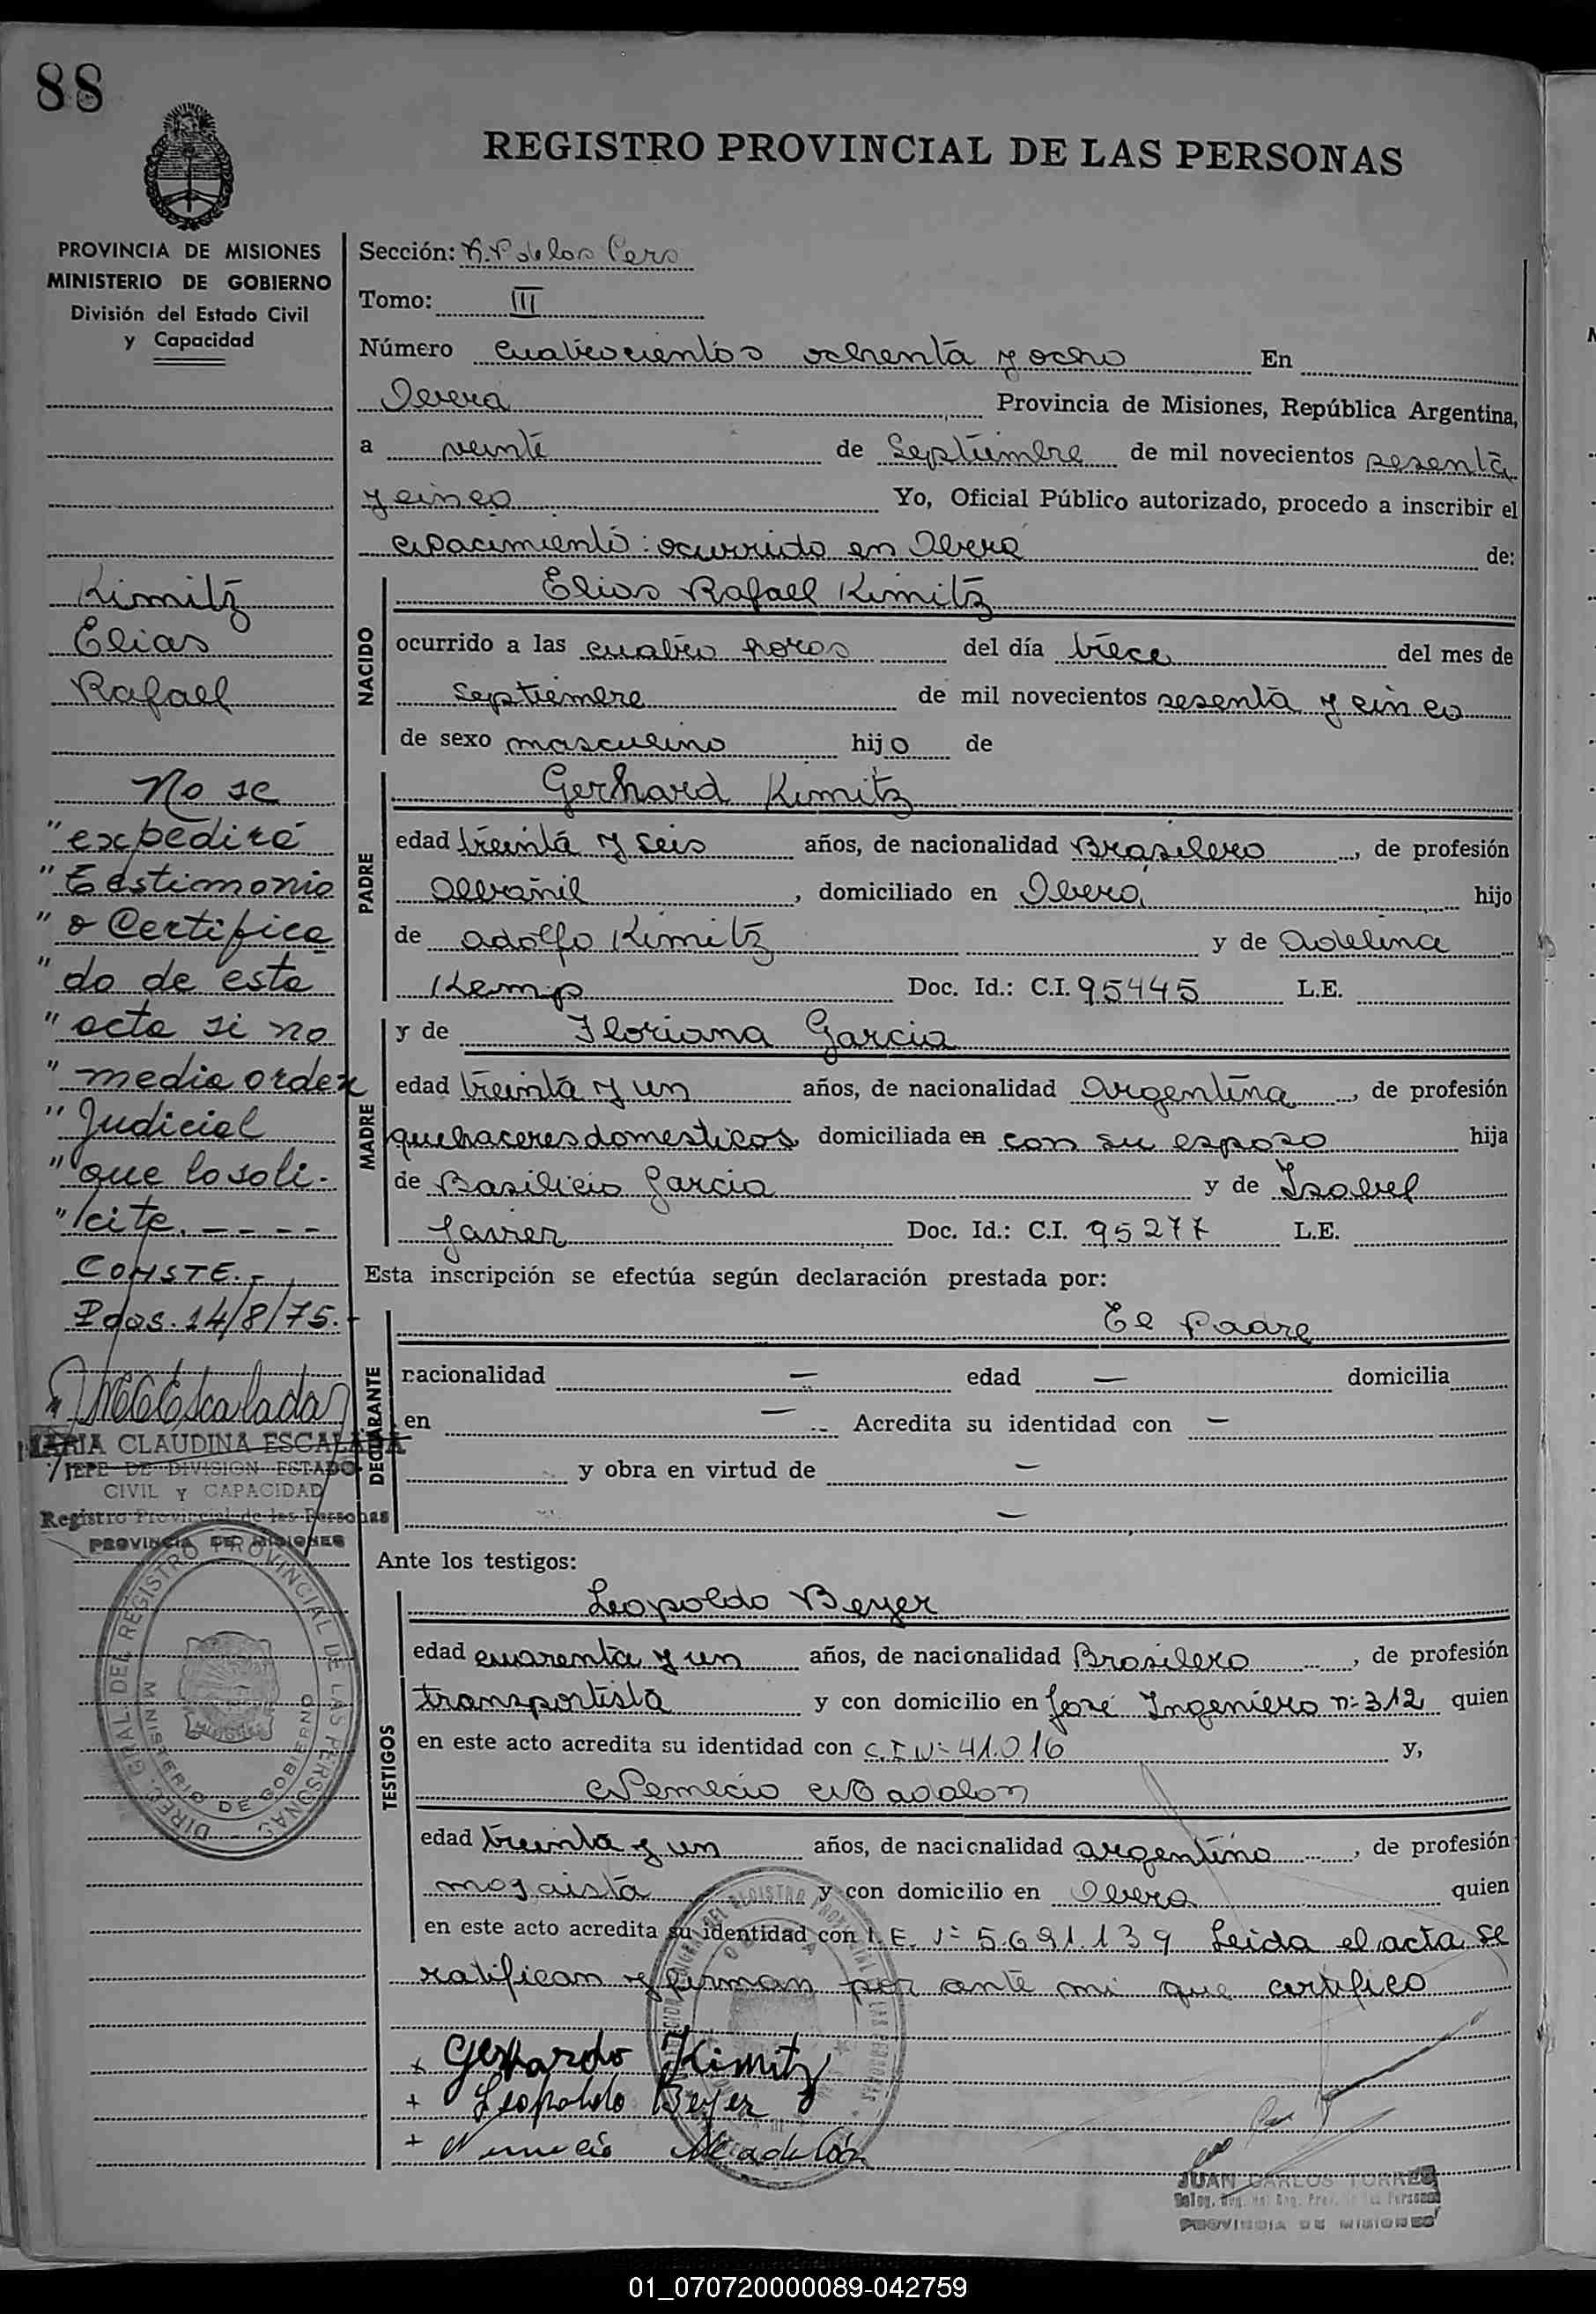 88
REGISTRO PROVINCIAL DE LAS PERSONAS
PROVINCIA DE MISIONES
MINISTERIO DE GOBIERNO
División del Estado Civil
y Capacidad
Kimitz
Elias
Rafael
No se
"expedirá
"Testimonio
"o Certifica
"do de esta
"acta si no
"media orden
"Judicial
"que lo soli-
"cite.----
CONSTE.-
Pdas. 14/8/75.-
MCEscalada
MARIA CLAUDINA ESCALADA
JEFE DE DIVISION ESTADO
CIVIL Y CAPACIDAD
Registro Provincial de las Personas
PROVINCIA DE MISIONES
DIREC. GRAL. DEL REGISTRO PROVINCIAL DE LAS PERSONAS
MINISTERIO DE GOBIERNO
MISIONES
Sección: R.P de las Pers
Tomo: III
Número cuatrocientos ochenta y ocho En
Obera Provincia de Misiones, República Argentina,
a veinte de Septiembre de mil novecientos sesenta
y cinco Yo, Oficial Público autorizado, procedo a inscribir el
Nacimiento: ocurrido en Oberá de:
NACIDO
Elias Rafael Kimitz
ocurrido a las cuatro horas del día trece del mes de
Septiembre de mil novecientos sesenta y cinco
de sexo masculino hijo de
PADRE
Gerhard Kimitz
edad treinta y seis años, de nacionalidad Brasilero, de profesión
Albañil, domiciliado en Obera, hijo
de Adolfo Kimitz y de Adelina
Kemp Doc. Id.: C.I. 95445 L.E.
MADRE
y de Floriana Garcia
edad treinta y un años, de nacionalidad Argentina, de profesión
quehaceres domesticos domiciliada en con su esposo hija
de Basilicio Garcia y de Isabel
Javier Doc. Id.: C.I. 95277 L.E.
Esta inscripción se efectúa según declaración prestada por:
DECLARANTE
El Padre
nacionalidad — edad — domicilia
en — Acredita su identidad con —
y obra en virtud de —
—
Ante los testigos:
TESTIGOS
Leopoldo Beyer
edad cuarenta y un años, de nacionalidad Brasilero, de profesión
transportista y con domicilio en José Ingeniero n:312 quien
en este acto acredita su identidad con C.I Nº 41.016 y,
Nemecio Madalon
edad treinta y un años, de nacionalidad argentino, de profesión
mosaista y con domicilio en Obera quien
en este acto acredita su identidad con L.E. Nº 5.691.139 Leida el acta se
ratifican y firman por ante mi que certifico
+ Gerhardo Kimitz
+ Leopoldo Beyer
+ Nemecio Madalón
JUAN CARLOS TORRES
PROVINCIA DE MISIONES
01_070720000089-042759